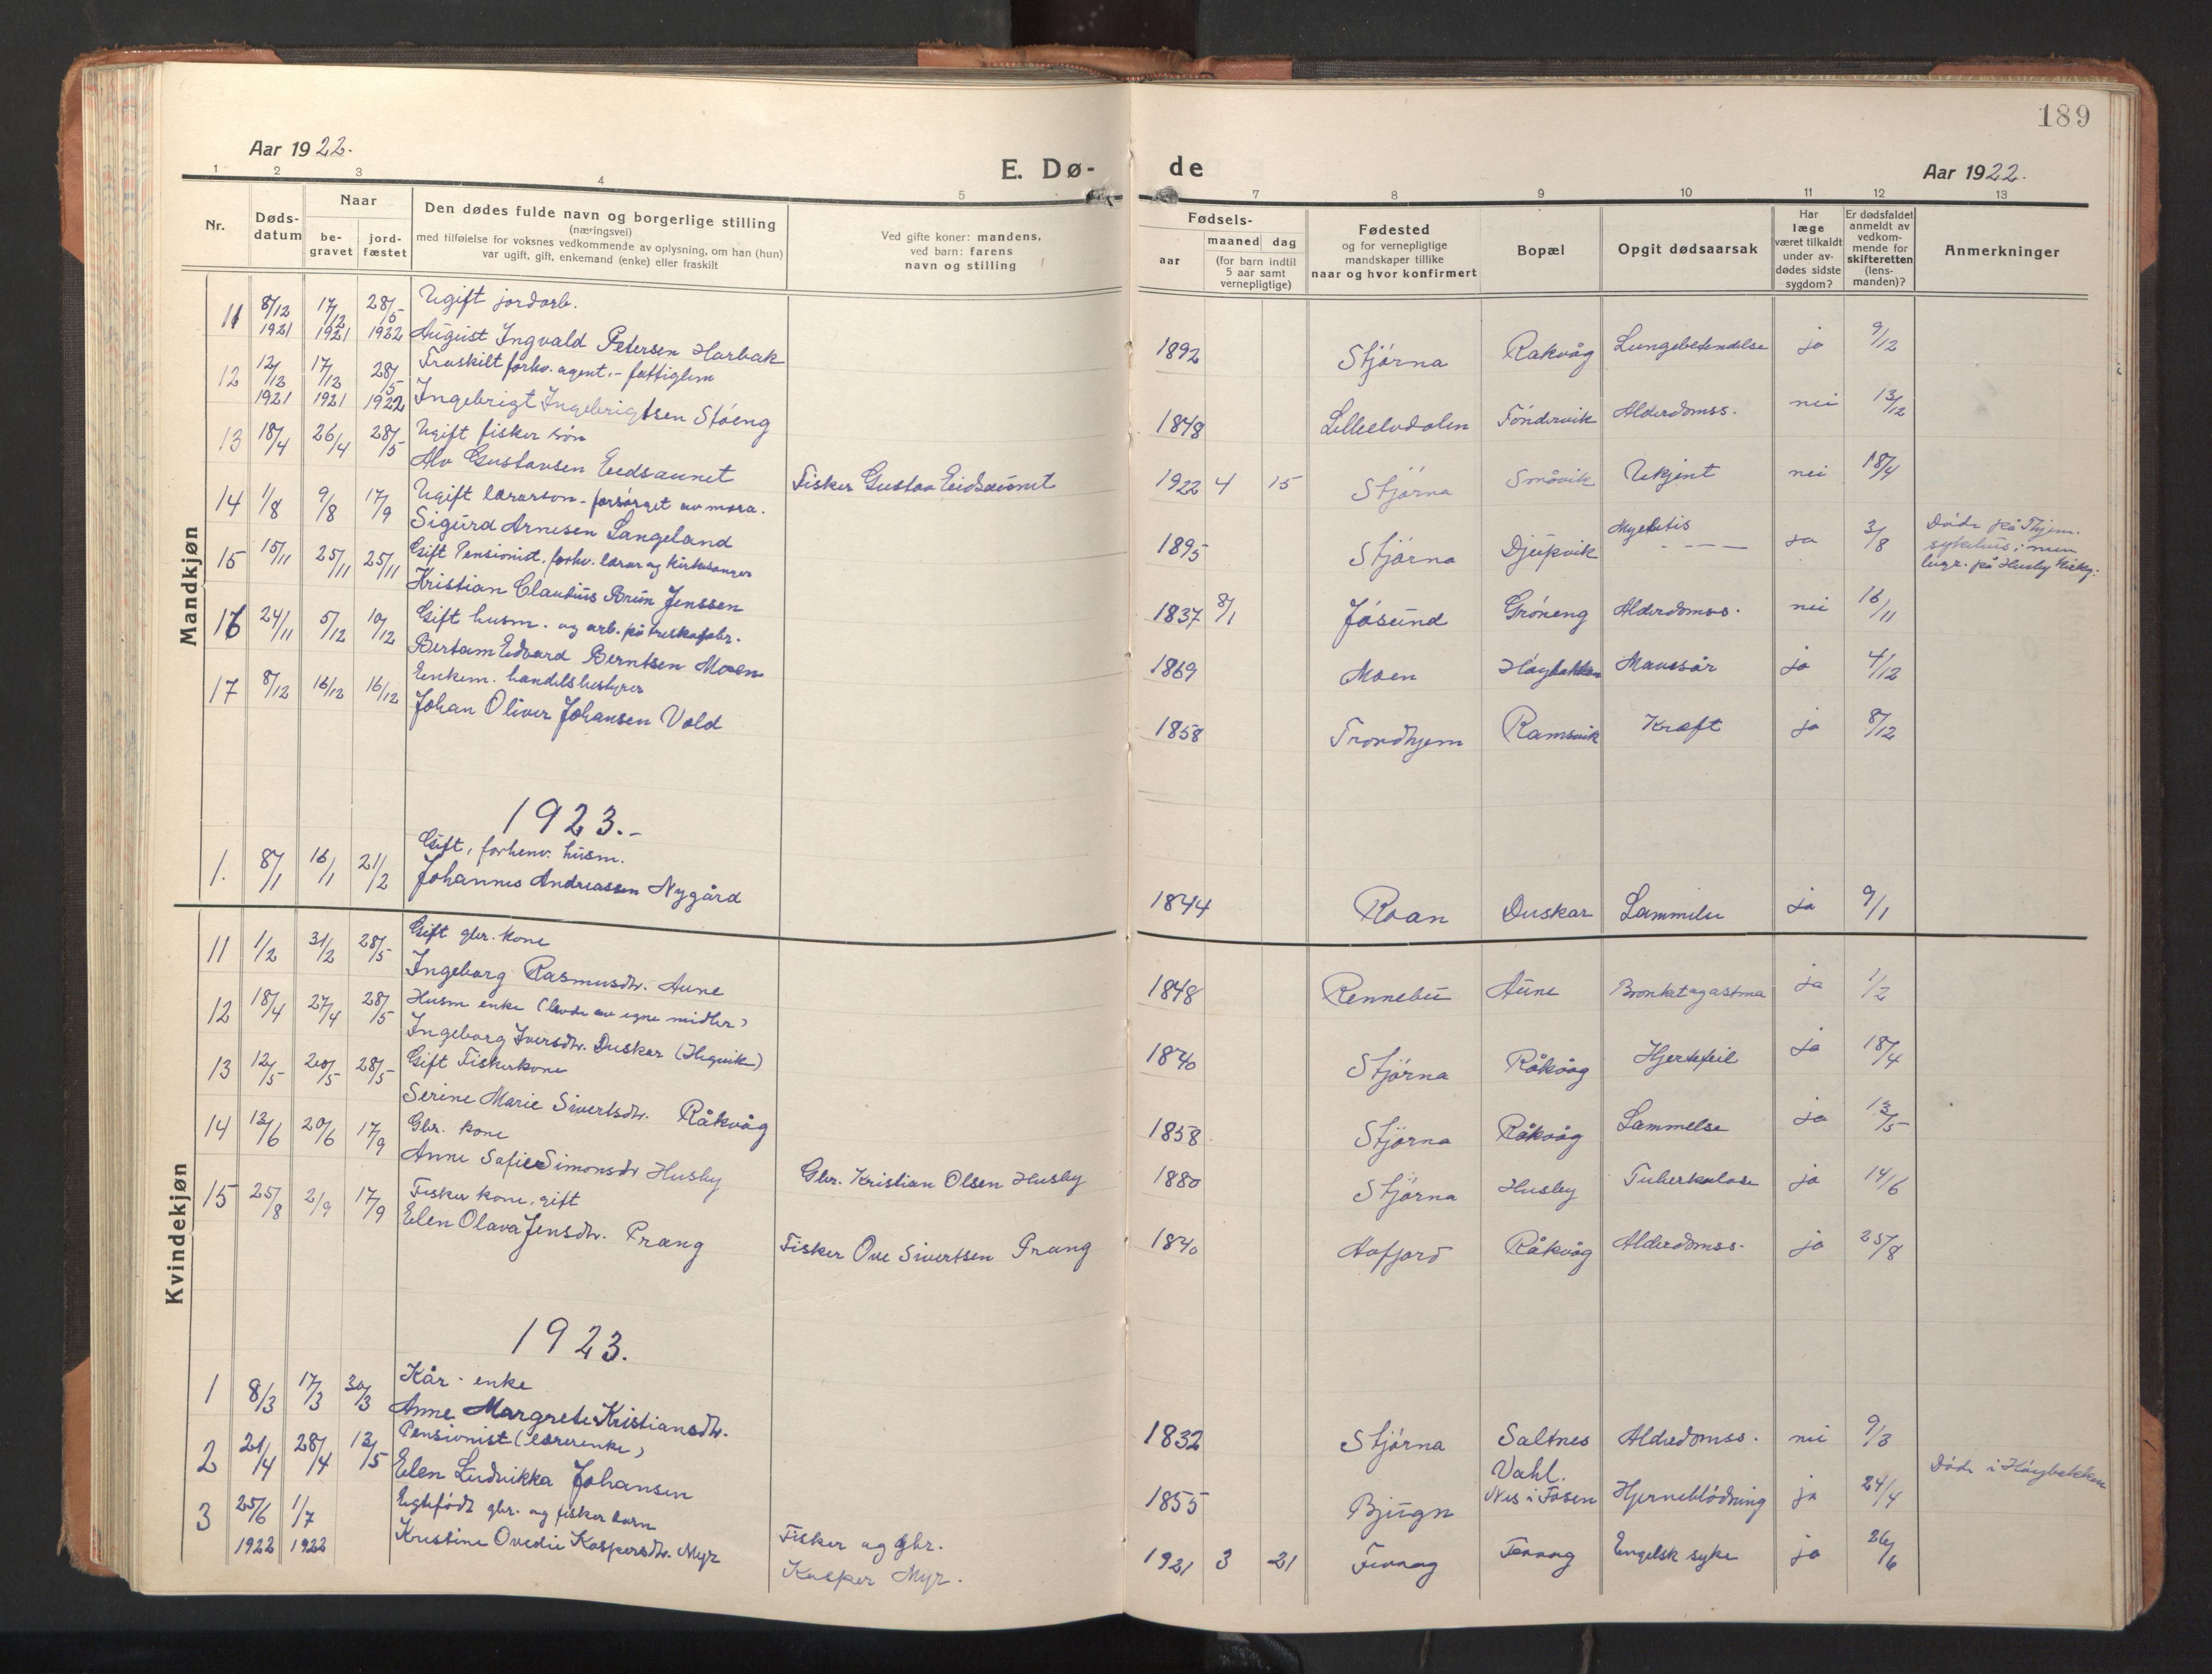 189
Aar 1922.
E. Dø-
de
Aar 1922.
1 2 3 4 5 7 8 9 10 11 12 13
Nr.
Døds-
datum
Naar
be-
gravet
jord-
fæstet
Den dødes fulde navn og borgerlige stilling
(næringsvei)
med tilføielse for voksnes vedkommende av oplysning, om han (hun)
var ugift, gift, enkemand (enke) eller fraskilt
Ved gifte koner: mandens,
ved barn: farens
navn og stilling
Fødsels-
aar
maaned dag
(for barn indtil
5 aar samt
vernepligtige)
Fødested
og for vernepligtige
mandskaper tillike
naar og hvor konfirmert
Bopæl
Opgit dødsaarsak
Har
læge
været tilkaldt
under av-
dødes sidste
sygdom?
Er dødsfaldet
anmeldt av
vedkom-
mende for
skifteretten
(lens-
manden)?
Anmerkninger
Mandkjøn
11 8/12 17/12 28/5 Ugift jordarb.
1921 1921 1922 August Ingvald Petersen Harbak
1892 Stjørna Rakvåg Lungebetendelse ja 9/12
12 12/12 17/12 28/5 Fraskilt forhv. agent. - fattiglem
1921 1921 1922 Ingebrigt Ingebrigtsen Støeng
1848 Lilleelvdalen Føndervik Alderdomss. nei 13/12
13 18/4 26/4 28/5 Ugift fisker søn
Alv Gustavsen Eidsaunet Fisker Gustav Eidsaunet
1922 4 15 Stjørna Småvik Ukjent nei 18/4
14 1/8 9/8 17/9 Ugift lærerson - forsørget av mora.
Sigurd Arnesen Langeland
1895 Stjørna Djupvik ja 3/8 Døde på Thjem.
sykehus; men
begr. på Husby Kirkg:
15 15/11 25/11 25/11 Gift Pensionist. forhv. lærer og kirkesanger
Kristian Claudius Brun Jenssen
1837 8/1 Jøsund Grøneng Alderdomss. nei 16/11
16 24/11 5/12 10/12 Gift husm. og arb. på
Bertam Edvard Berntsen Moen
1869 Moen Høybakken Mavesår ja 4/12
17 8/12 16/12 16/12 Enkem. handelsbestyrer
Johan Oliver Johansen Vold
1858 Trondhjem Ramsvik Kræft ja 8/12
1923.-
1. 8/1 16/1 21/2 Gift, forhenv. husm.
Johannes Andreassen Nygård
1844 Roan Duskar Lammelse ja 9/1
Kvindekjøn
11 1/2 31/2 28/5 Gift gbr. kone
Ingeborg Rasmusdtr. Aune
1848 Rennebu Aune Bronkit og astma ja 1/2
12 18/4 27/4 28/5 Husm enke (levde av egne midler)
Ingeborg Iversdtr. Duskar (Hegvik)
1840 Stjørna Råkvåg Hjertefeil ja 18/4
13 12/5 20/5 28/5 Gift Fiskerkone
Serine Marie Sivertsdtr. Råkvåg
1858 Stjørna Råkvåg Lammelse ja 13/5
14 13/6 20/6 17/9 Gbr. kone
Anne Sofie Simonsdtr Husby Gbr. Kristian Olsen Husby
1880 Stjørna Husby Tuberkulose ja 14/6
15 25/8 2/9 17/9 Fisker kone, gift
Elen Olava Jensdtr. Prang Fisker Ove Sivertsen Prang
1840 Aafjord Råkvåg Alderdomss. ja 25/8
1923.
1 8/3 17/3 30/3 Kår - enke
Anne Margrete Kristiansdtr.
1832 Stjørna Saltnes Alderdomss. nei 9/3
2 21/4 28/4 13/5 Pensionist (lærerenke)
Elen Ludvikka Johansen
1855 Bjugn Vahl.
Nes i Fosen Hjerneblødning ja 24/4 Døde i Høybakken
3 25/6 1/7 Egtefødt gbr. og fisker barn
1922 1922 Kristine Ovedie Kaspersdtr. Myr Fisker og gbr.
Kasper Myr.
1921 3 21 Fevaag Fevaag Engelsk syke ja 26/6